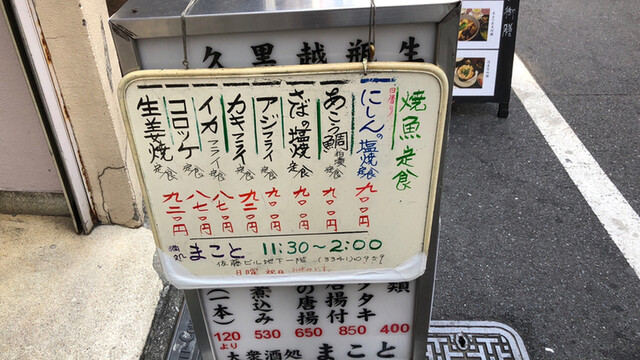 久 黒 越 瓶 生
焼魚定食
日替り
にしんの塩焼 定食 九〇〇円
あこう鯛 粕漬 定食 九〇〇円
さばの塩焼 定食 九〇〇円
アジフライ 定食 九〇〇円
カキフライ 定食 九二〇円
イカフライ 定食 八七〇円
コロッケ 定食 八七〇円
生姜焼 定食 九二〇円
酒処 まこと 11:30～2:00
佐藤ビル地下一階 (3341)0959
日曜 祝日
類 400
タタキ 850
唐揚付
の唐揚 650
煮込み 530
(一本) 120より
大衆酒処 まこと
御膳